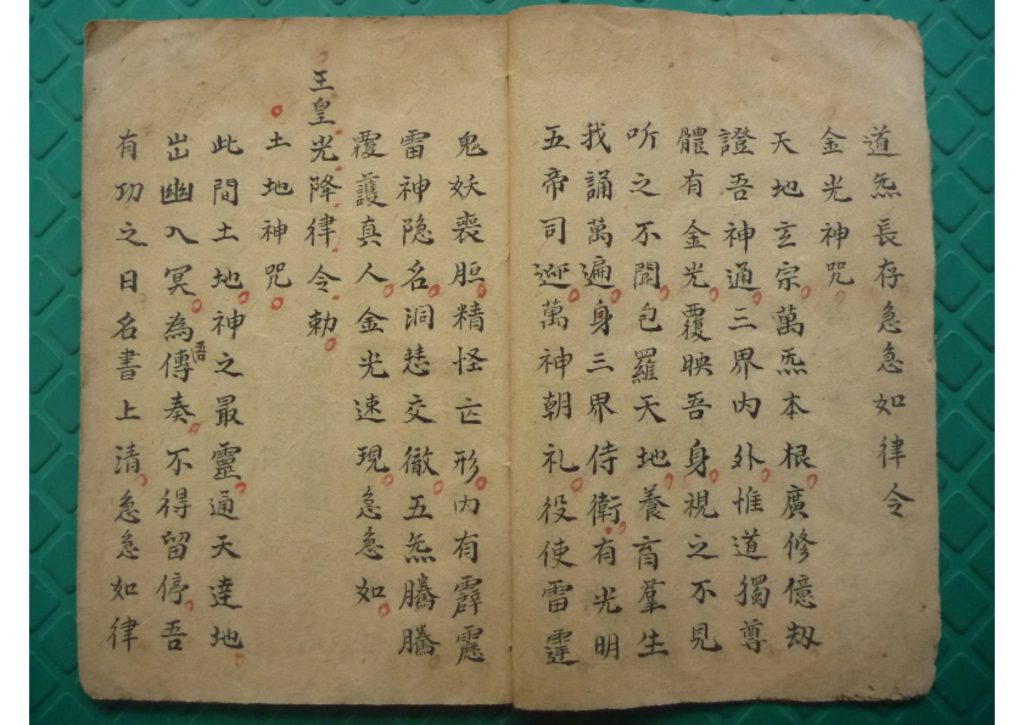 道炁長存急急如律令
金光神咒
天地玄宗萬炁本根廣修億劫
證吾神通三界內外惟道獨尊
體有金光覆映吾身視之不見
听之不聞包羅天地養育羣生
我誦萬遍身三界侍衛有光明
五帝司迎萬神朝礼役使雷霆
鬼妖喪胆精怪亡形內有霹靂
雷神隐名洞慧交徹五炁騰騰
覆護真人金光速現急急如
王皇光降律令勅
土地神咒
此間土地神之最靈通天達地
岀幽入冥為吾傳奏不得留停吾
有功之日名書上清急急如律